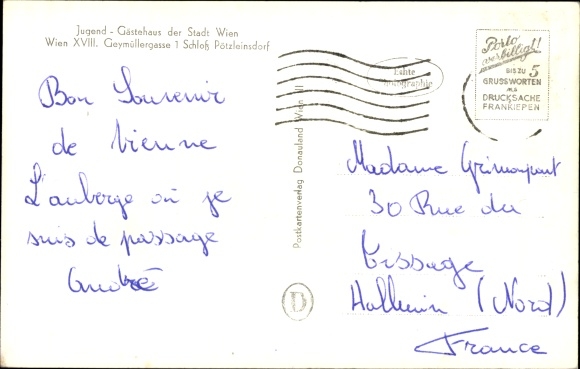 Jugend - Gästehaus der Stadt Wien
Wien XVIII. Geymüllergasse 1 Schloß Pötzleinsdorf
Bon Souvenir
de Vienne
L'auberge où je
suis de passage
André
Postkartenverlag Donauland Wien III
Echte
Photographie
D
Porto
verbilligt!
BIS ZU 5
GRUSSWORTEN
ALS
DRUCKSACHE
FRANKIEREN
Madame Grimonpont
30 Rue du
Tissage
Halluin (Nord)
France